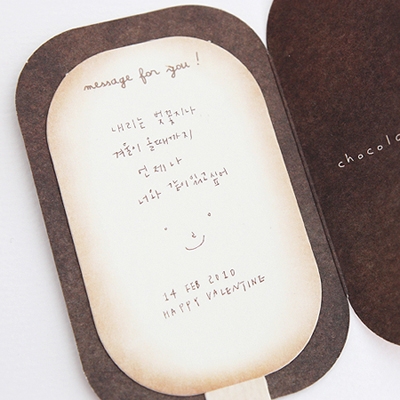 message for you!
내리는 벚꽃지나
겨울이 올때까지
언제나
너와 같이있고싶어
14 FEB 2010
HAPPY VALENTINE
chocola